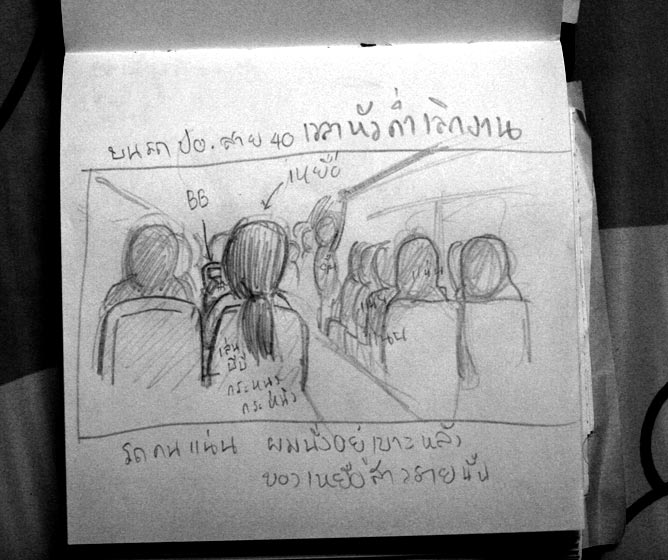 บนรถ ปอ. สาย 40 เวลาหัวค่ำเลิกงาน
เหยื่อ
BB
แน่น
แน่น
แน่น
เล่น
บีบี
กระหนุง
กระหนิง
รถคนแน่น ผมนั่งอยู่เบาะหลัง
ของเหยื่อสาวรายนั้น